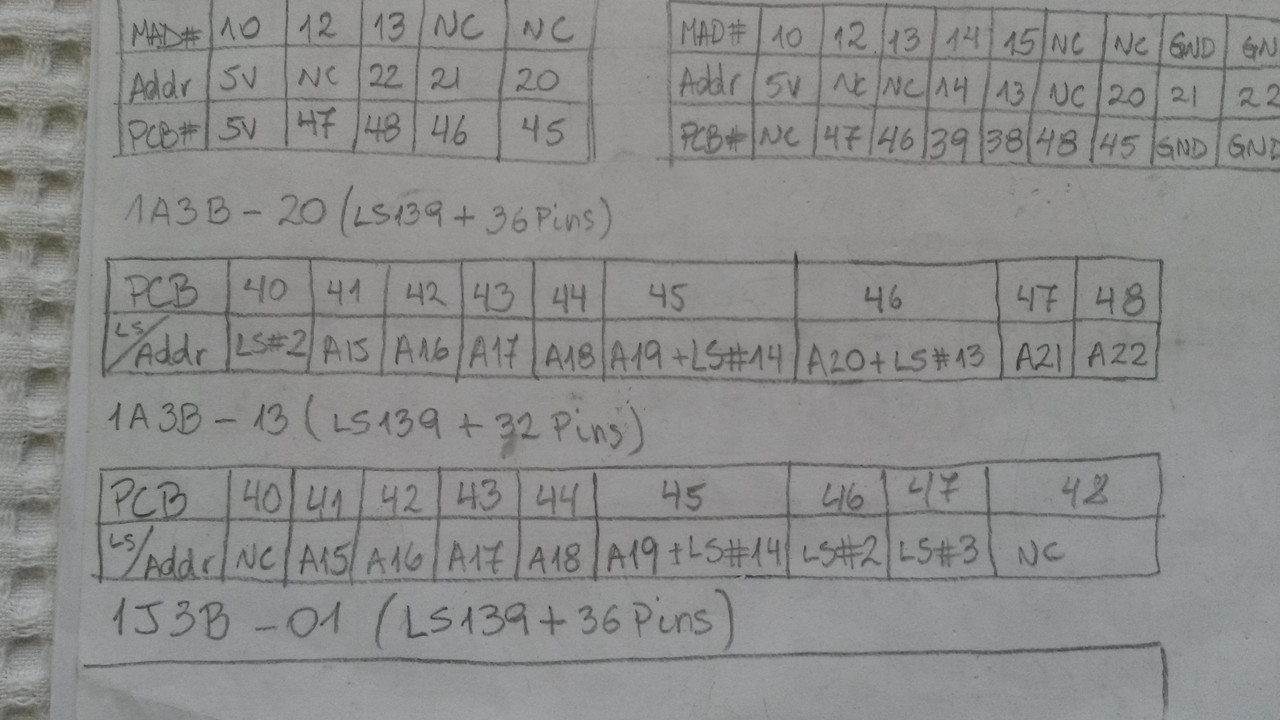 MAD# 10 12 13 NC NC
Addr 5V NC 22 21 20
PCB# 5V 47 48 46 45
MAD# 10 12 13 14 15 NC NC GND GN
Addr 5V NC NC 14 13 NC 20 21 22
PCB# NC 47 46 39 38 48 45 GND GND
1A3B - 20 (LS139 + 36 Pins)
PCB 40 41 42 43 44 45 46 47 48
LS/Addr LS#2 A15 A16 A17 A18 A19+LS#14 A20+LS#13 A21 A22
1A3B - 13 (LS139 + 32 Pins)
PCB 40 41 42 43 44 45 46 47 48
LS/Addr NC A15 A16 A17 A18 A19+LS#14 LS#2 LS#3 NC
1J3B - 01 (LS139 + 36 Pins)